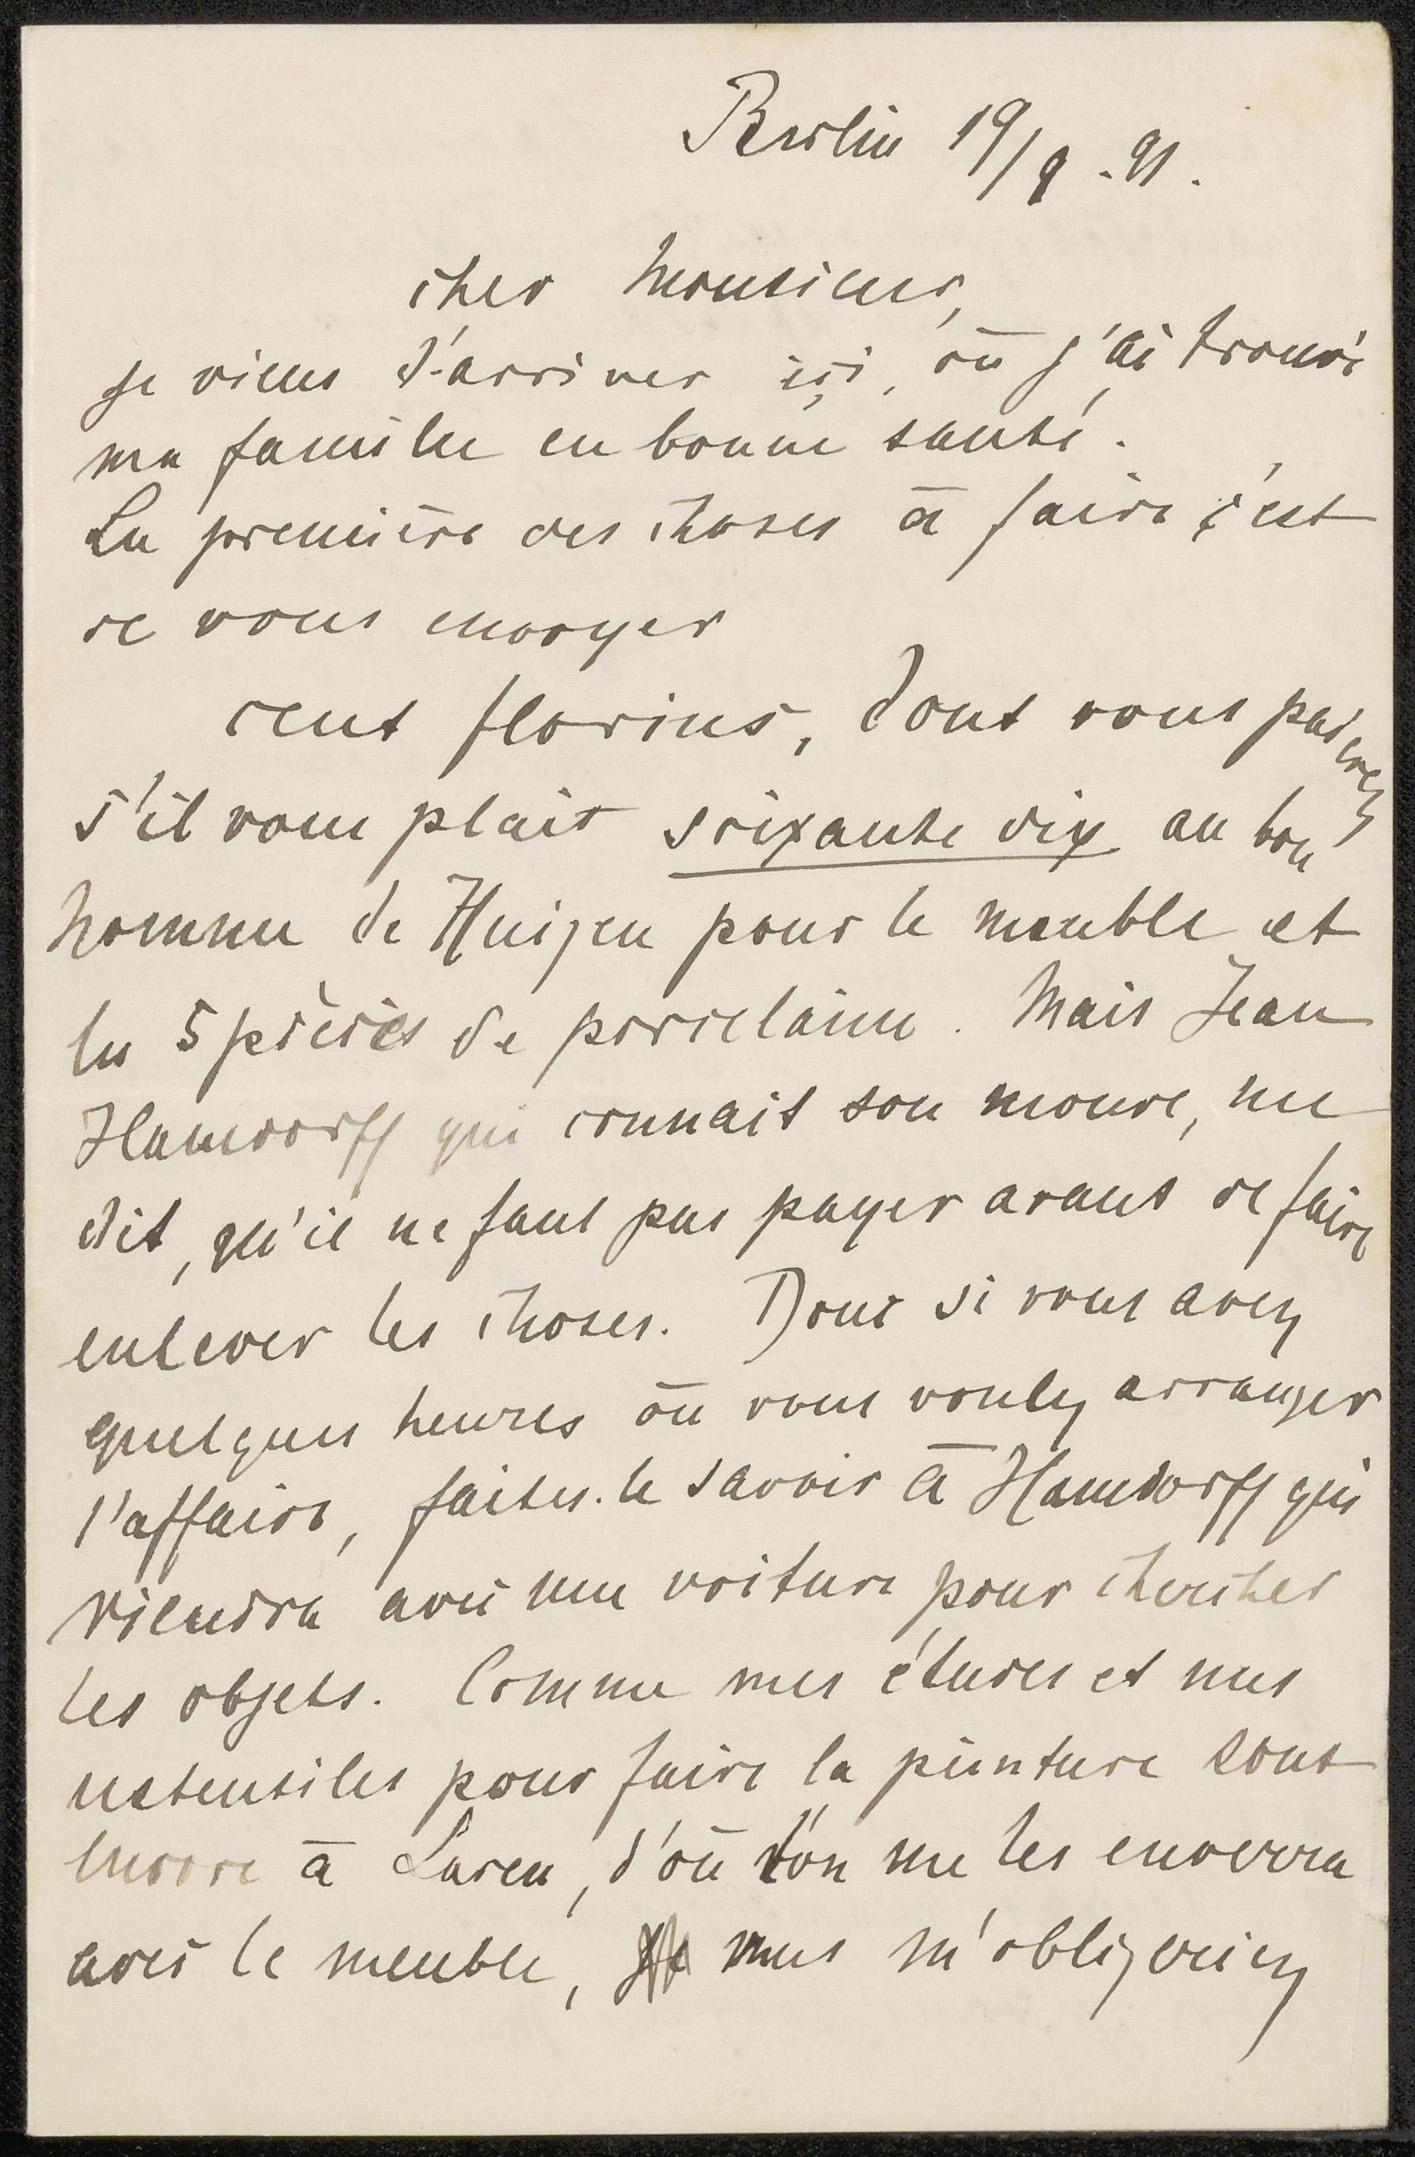 Berlin 19/9. 91.
cher Monsieur,
je viens d'arriver içi, où j'ai trouvé
ma famille en bonne santé.
La première des choses à faire c'est
de vous envoyer
cent florins, dont vous paierez
s'il vous plait soixante dix au bon
homme de Huizen pour le meuble et
les 5 pièces de porcelaine. Mais Jean
Hamdorff qui connait son monde, me
dit, qu'il ne faut pas payer avant de faire
enlever les choses. Donc si vous avez
quelques heures où vous voulez arranger
l'affaire, faites-le savoir à Hamdorff qui
viendra avec une voiture pour chercher
les objets. Comme mes études et mes
ustensiles pour faire la peinture sont
encore à Laren, d'où l'on me les enverra
avec le meuble, vous m'obligeriez